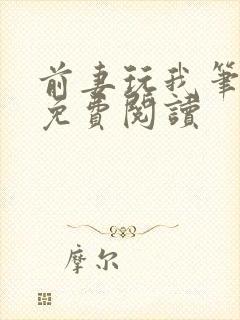 前妻玩我筆
免費閱讀
摩尔